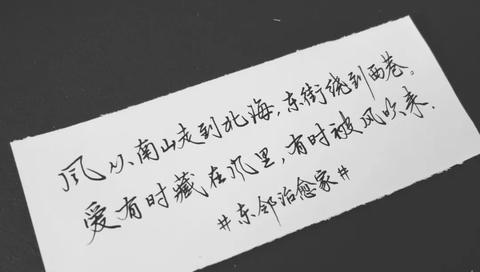 风从南山走到北海，东街绕到西巷。
爱有时藏在风里，有时被风吹来．
#东邻治愈家#